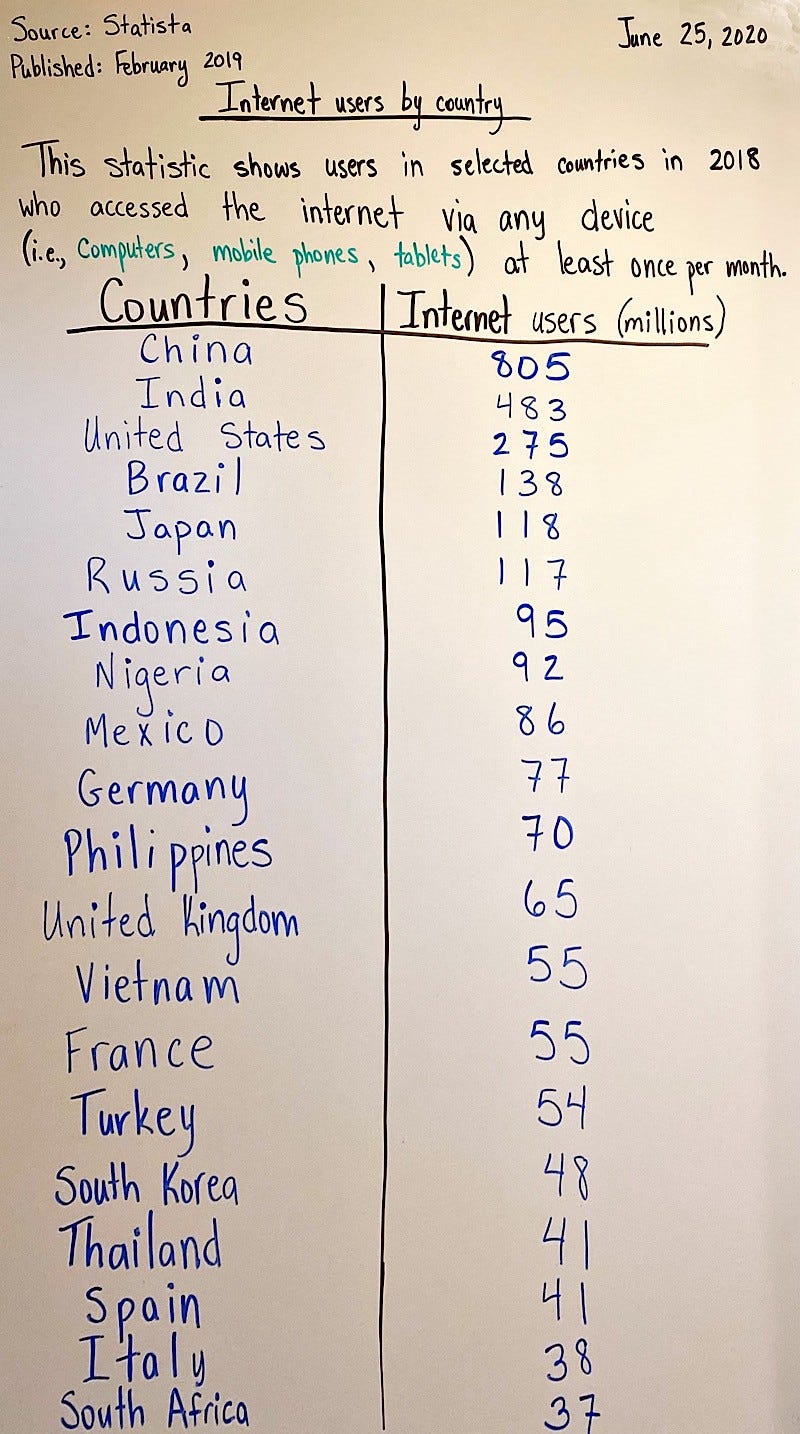 Source: Statista
June 25, 2020
Published: February 2019
Internet users by country
This statistic shows users in selected countries in 2018
who accessed the internet via any device
(i.e., Computers, mobile phones, tablets) at least once per month.
Countries Internet users (millions)
China 805
India 483
United States 275
Brazil 138
Japan 118
Russia 117
Indonesia 95
Nigeria 92
Mexico 86
Germany 77
Philippines 70
United Kingdom 65
Vietnam 55
France 55
Turkey 54
South Korea 48
Thailand 41
Spain 41
Italy 38
South Africa 37